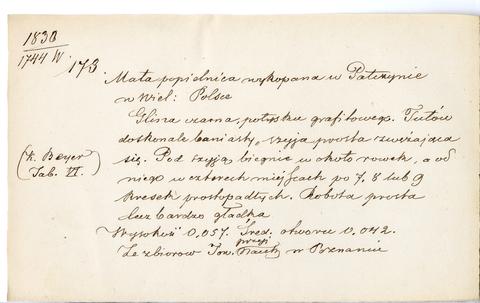 1830
1744 W
173
Mała popielnica wykopana w Patczynie
w Wiel: Polsce
Glina czarna, połysku grafitowego. Tułów
doskonale baniasty, szyja prosta zwężająca
się. Pod szyją biegnie w około rowek, a od
niego w czterech miejscach po 7, 8 lub 9
kresek prostopadłych. Robota prosta
lecz bardzo gładka
Wysokość 0,057. Śred. otworu 0,042.
Ze zbiorów Tow. przyj Nauk w Poznaniu
(K. Beyer
Tab. VI.)